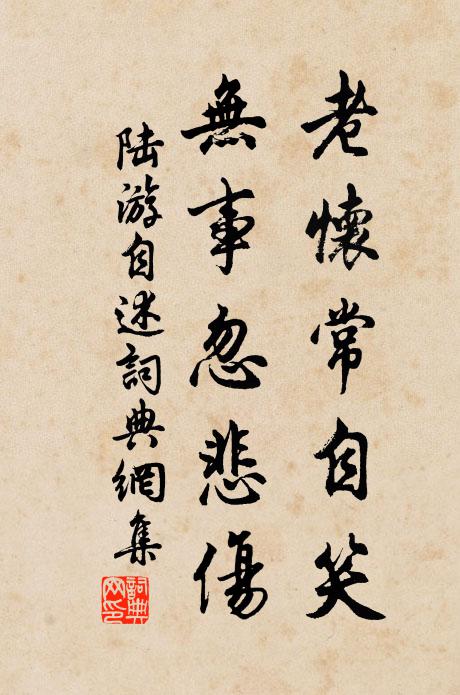 老懷常自笑
無事忽悲傷
陆游自述詞典網集
詞典
網印